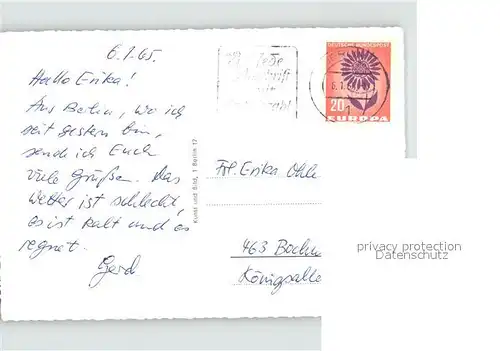 6.1.65.
Hallo Erika!
Aus Berlin, wo ich
seit gestern bin,
sende ich Euch
viele Grüße. Das
Wetter ist schlecht,
es ist kalt und es
regnet.
Gerd
Kunst und Bild, 1 Berlin 12
Jede
mit
DEUTSCHE BUNDESPOST
20
EUROPA
Frl. Erika Ohle
463 Bochu
Königsalle
privacy protection
Datenschutz